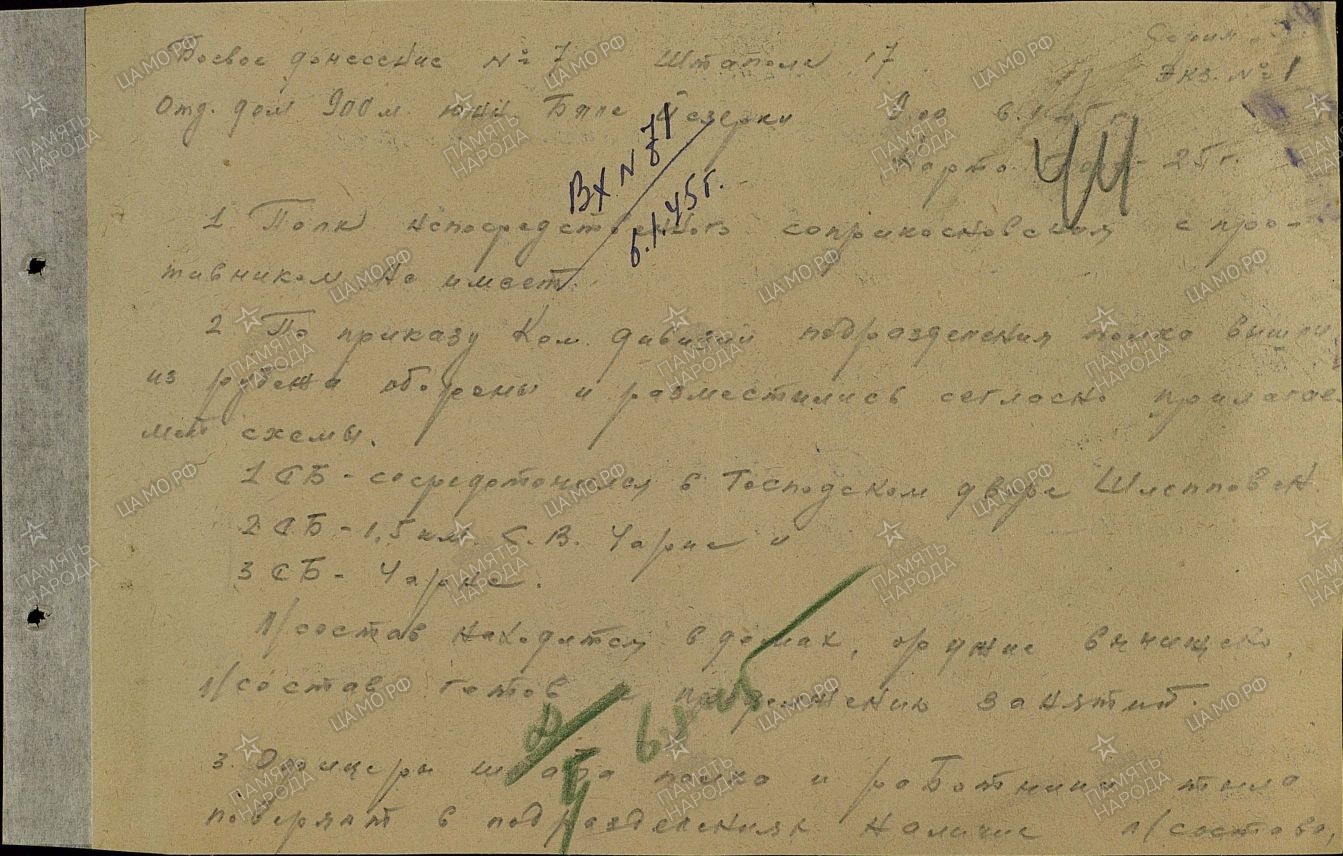 Серия
Боевое донесение № 7 Штаполк 17
экз. № 1
Отд. дом 900 м. южн Езерки 9.00 6.1.45 г
Карта - 25 г.
Вх N 71
6.1.45 г.
44
1 Полк непосредственного соприкосновения с про-
тивником не имеет.
2 По приказу Ком. дивизии подразделения полка вышли
из рубежа обороны и разместились согласно прилагае
мой схемы.
1 СБ - сосредоточился в Господском дворе
2 СБ - 1,5 км. С.В. Чарне и
3 СБ - Чарне.
Л/состав находится в домах, оружие вычищено,
л/состав готов к занятий.
3. Офицеры штаба полка и работники тыла
поверяют в подразделениях наличие л/состава,
ПАМЯТЬ НАРОДА
ЦА МО РФ